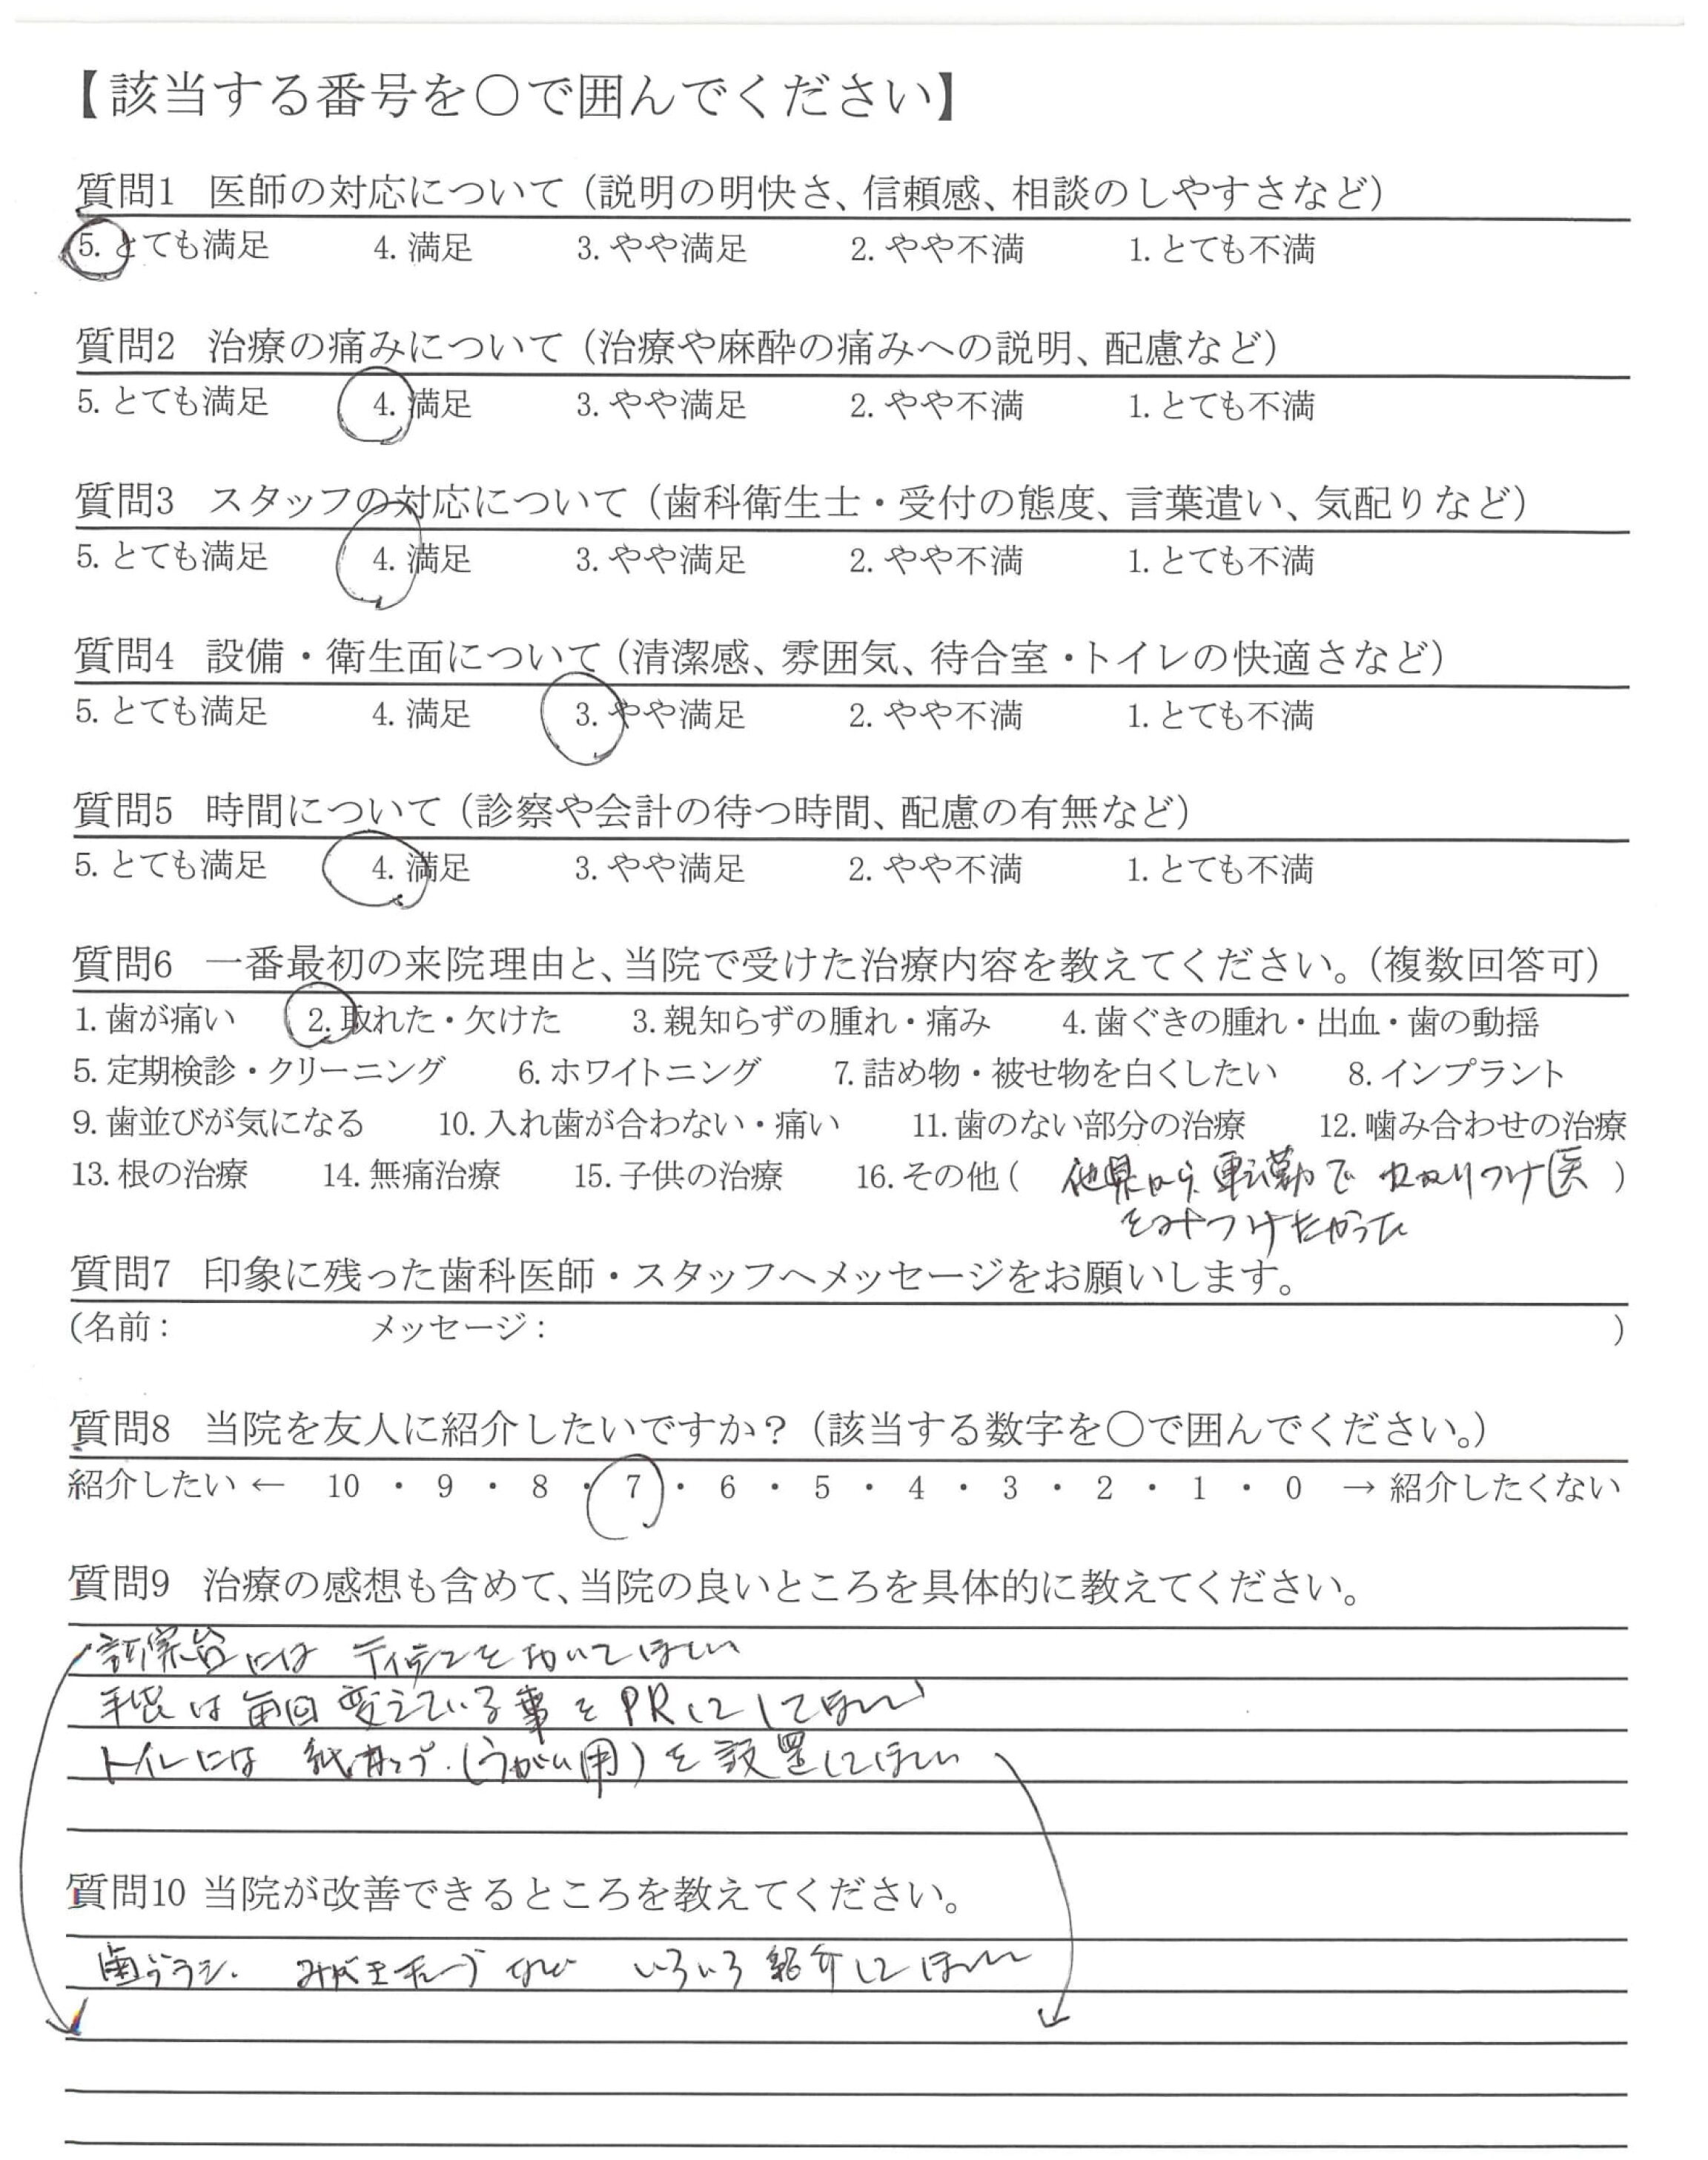 【該当する番号を○で囲んでください】
質問1 医師の対応について（説明の明快さ、信頼感、相談のしやすさなど）
5. とても満足 4. 満足 3. やや満足 2. やや不満 1. とても不満
質問2 治療の痛みについて（治療や麻酔の痛みへの説明、配慮など）
5. とても満足 4. 満足 3. やや満足 2. やや不満 1. とても不満
質問3 スタッフの対応について（歯科衛生士・受付の態度、言葉遣い、気配りなど）
5. とても満足 4. 満足 3. やや満足 2. やや不満 1. とても不満
質問4 設備・衛生面について（清潔感、雰囲気、待合室・トイレの快適さなど）
5. とても満足 4. 満足 3. やや満足 2. やや不満 1. とても不満
質問5 時間について（診察や会計の待つ時間、配慮の有無など）
5. とても満足 4. 満足 3. やや満足 2. やや不満 1. とても不満
質問6 一番最初の来院理由と、当院で受けた治療内容を教えてください。（複数回答可）
1. 歯が痛い 2. 取れた・欠けた 3. 親知らずの腫れ・痛み 4. 歯ぐきの腫れ・出血・歯の動揺
5. 定期検診・クリーニング 6. ホワイトニング 7. 詰め物・被せ物を白くしたい 8. インプラント
9. 歯並びが気になる 10. 入れ歯が合わない・痛い 11. 歯のない部分の治療 12. 噛み合わせの治療
13. 根の治療 14. 無痛治療 15. 子供の治療 16. その他（ 他県から転勤で かかりつけ医 ）
をみつけたかった
質問7 印象に残った歯科医師・スタッフへメッセージをお願いします。
（名前： メッセージ： ）
質問8 当院を友人に紹介したいですか？（該当する数字を○で囲んでください。）
紹介したい ← 10 ・ 9 ・ 8 ・ 7 ・ 6 ・ 5 ・ 4 ・ 3 ・ 2 ・ 1 ・ 0 → 紹介したくない
質問9 治療の感想も含めて、当院の良いところを具体的に教えてください。
診察台には ティッシュをおいてほしい
手袋は毎回変えている事をPRしてほしい
トイレには 紙カップ（うがい用）を設置してほしい
質問10 当院が改善できるところを教えてください。
歯ブラシ、みがきチューブなど いろいろ紹介してほしい